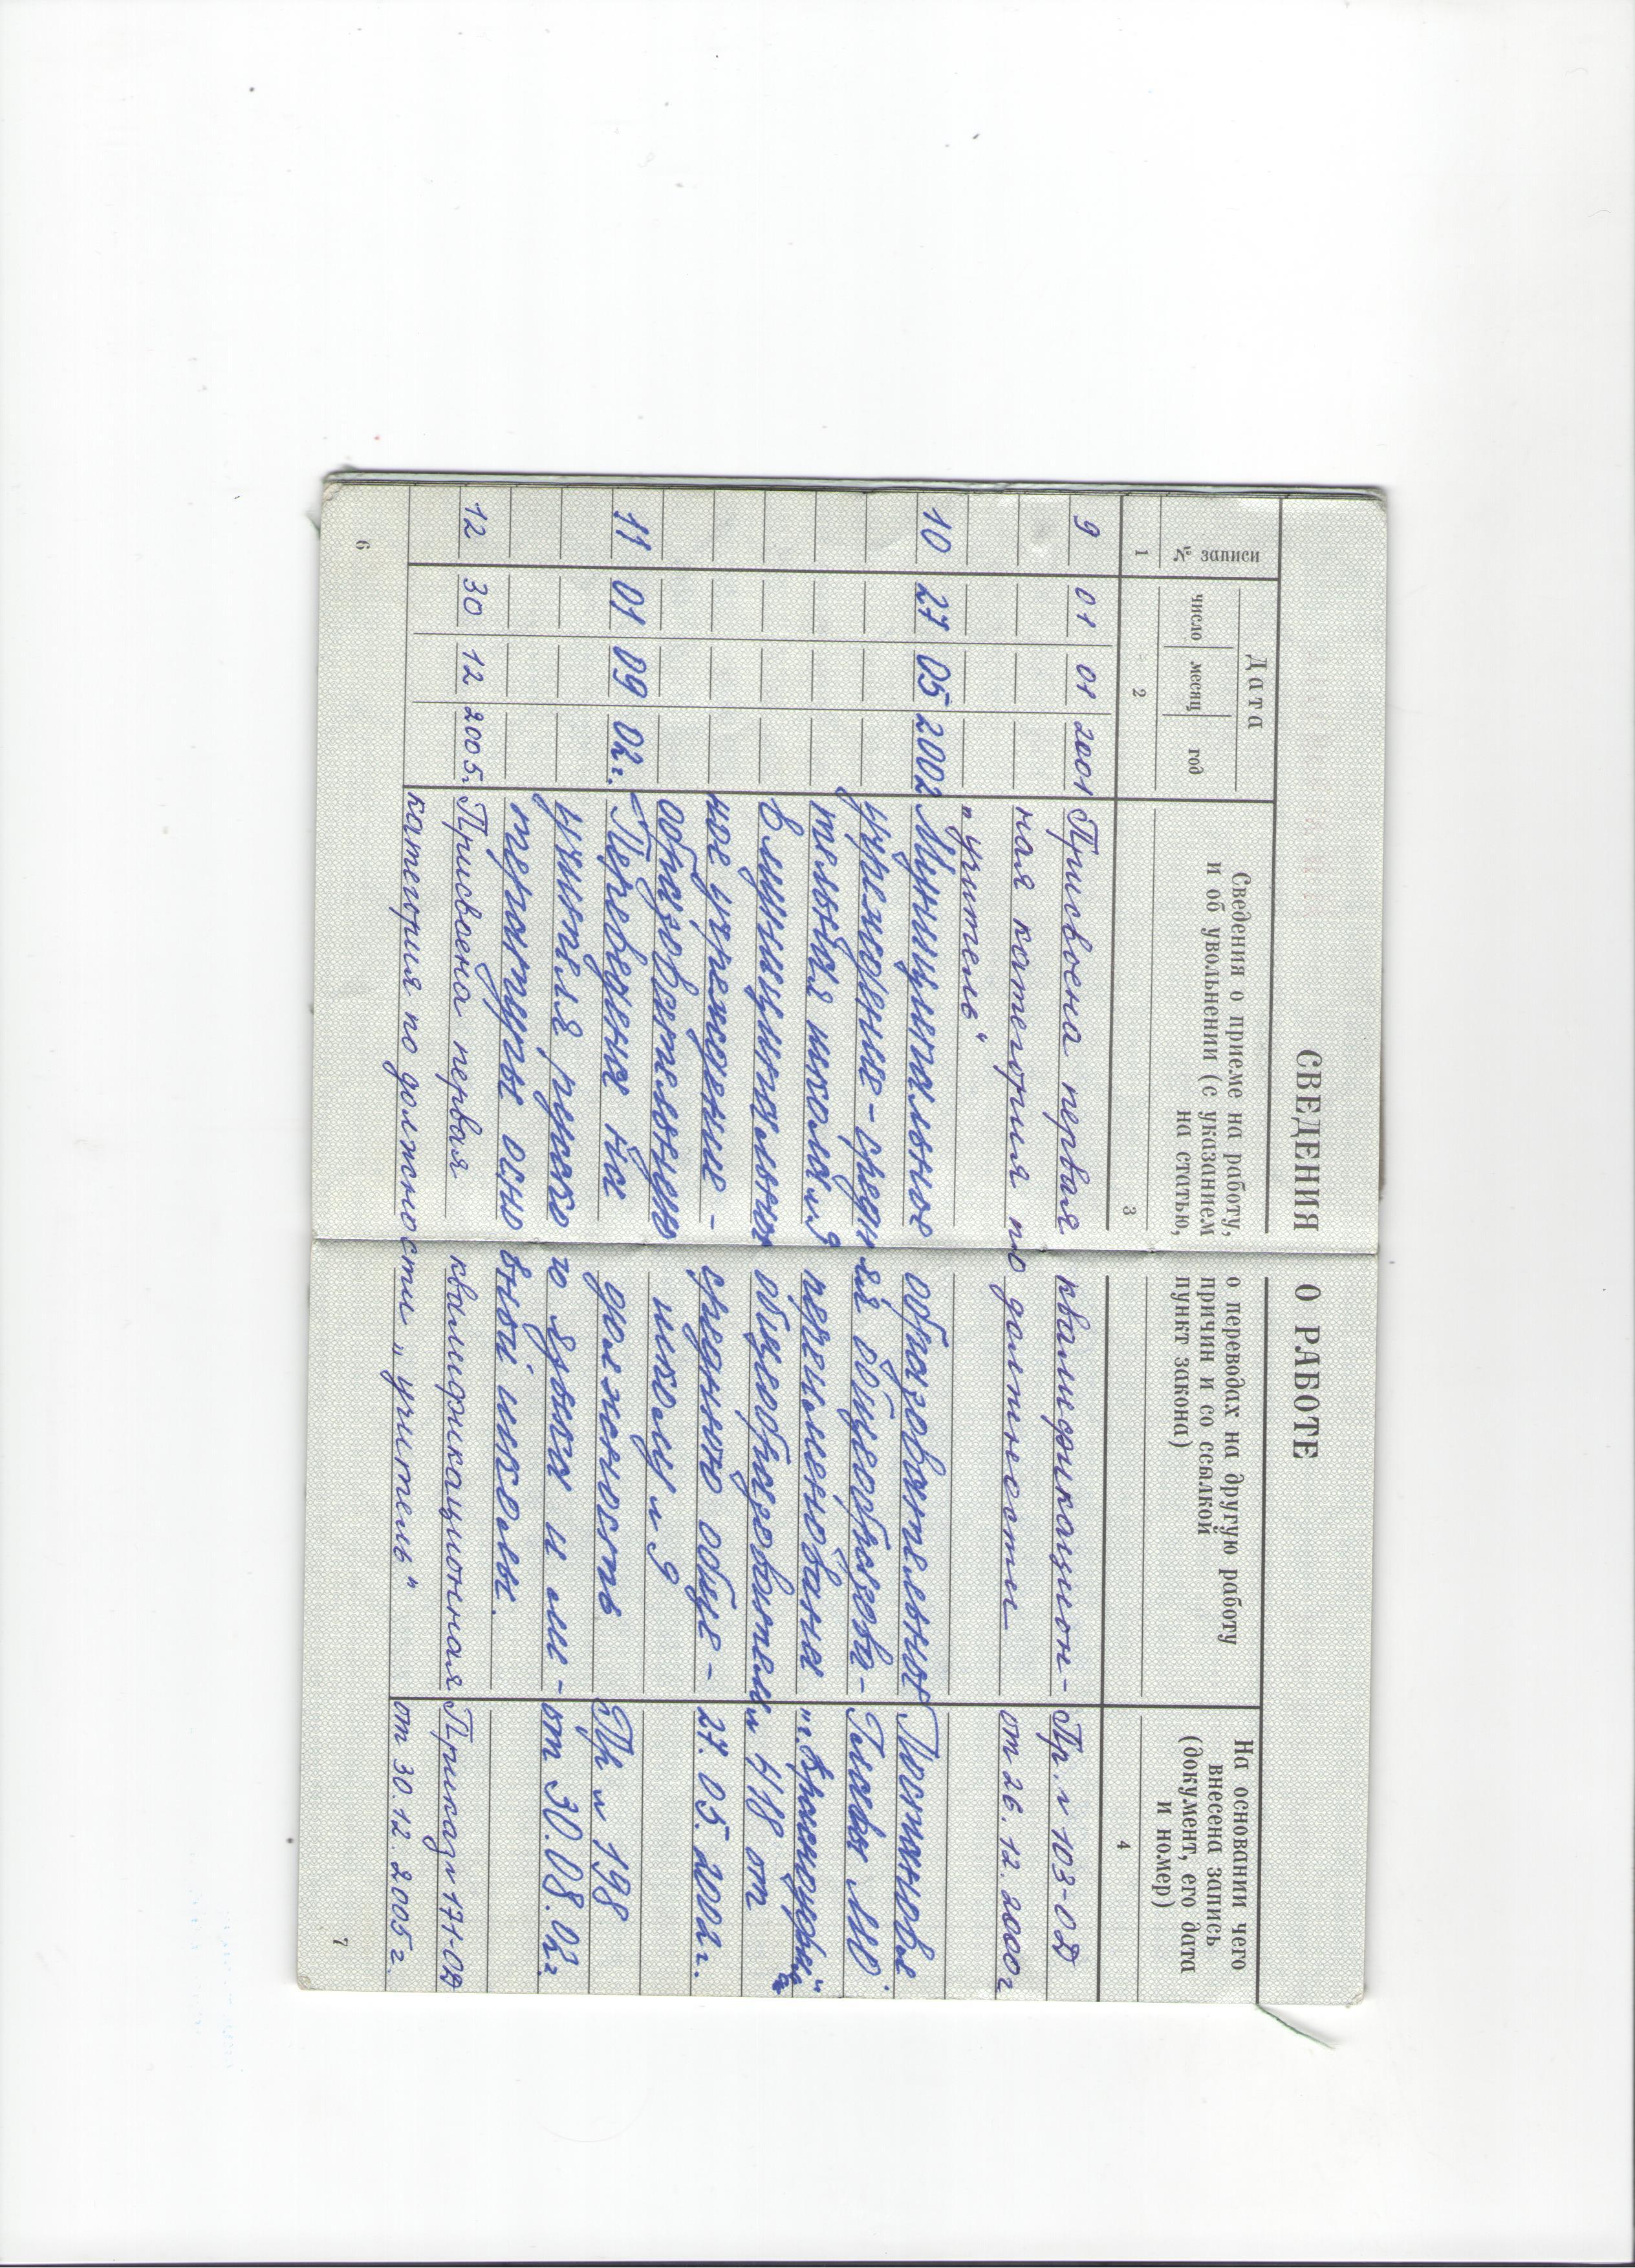 СВЕДЕНИЯ О РАБОТЕ
№ записи
Дата
число месяц год
Сведения о приеме на работу, о переводах на другую работу
и об увольнении (с указанием причин и со ссылкой
на статью, пункт закона)
На основании чего
внесена запись
(документ, его дата
и номер)
1 2 3 4
9 01 01 2001 Присвоена первая квалификацион- Пр. № 103-ОД
ная категория по должности от 26.12.2000г
„учитель“
10 27 05 2002 Муниципальное образовательное Постановле
учреждение-средняя общеобразова- Главы МО
тельная школа № 9 переименована „г.
в муниципальное общеобразователь № 418 от
ное учреждение - среднюю обще- 27.05.2002г.
образовательную школу № 9
11 01 09 02г. Переведена на должность Пр № 198
учителя русского языка и ли- от 30.08.02г.
тературы основной школы.
12 30 12 2005г. Присвоена первая квалификационная Приказ № 171-ОД
категория по должности „учитель“ от 30.12.2005г.
6 7